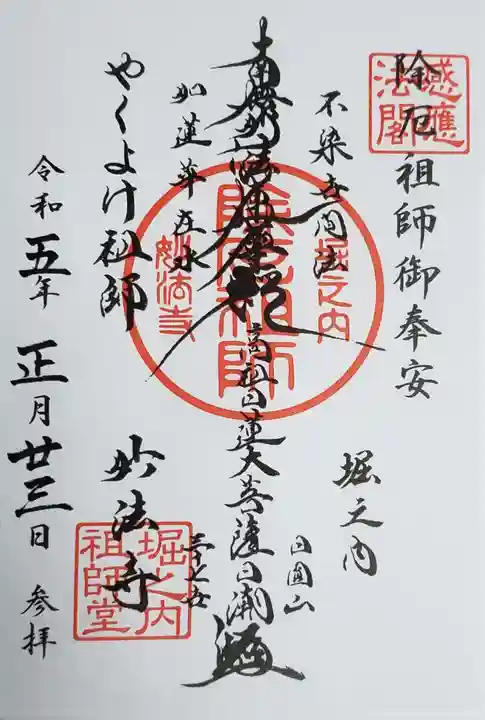 除厄祖師御奉安
感應
法閣
不染世間法
如蓮華在水
南無妙法蓮華経
高祖日蓮大菩薩
堀之内
除厄祖師
妙法寺
やくよけ祖師
堀之内
日圓山
妙法寺
堀之内
祖師堂
令和五年正月廿三日 参拝